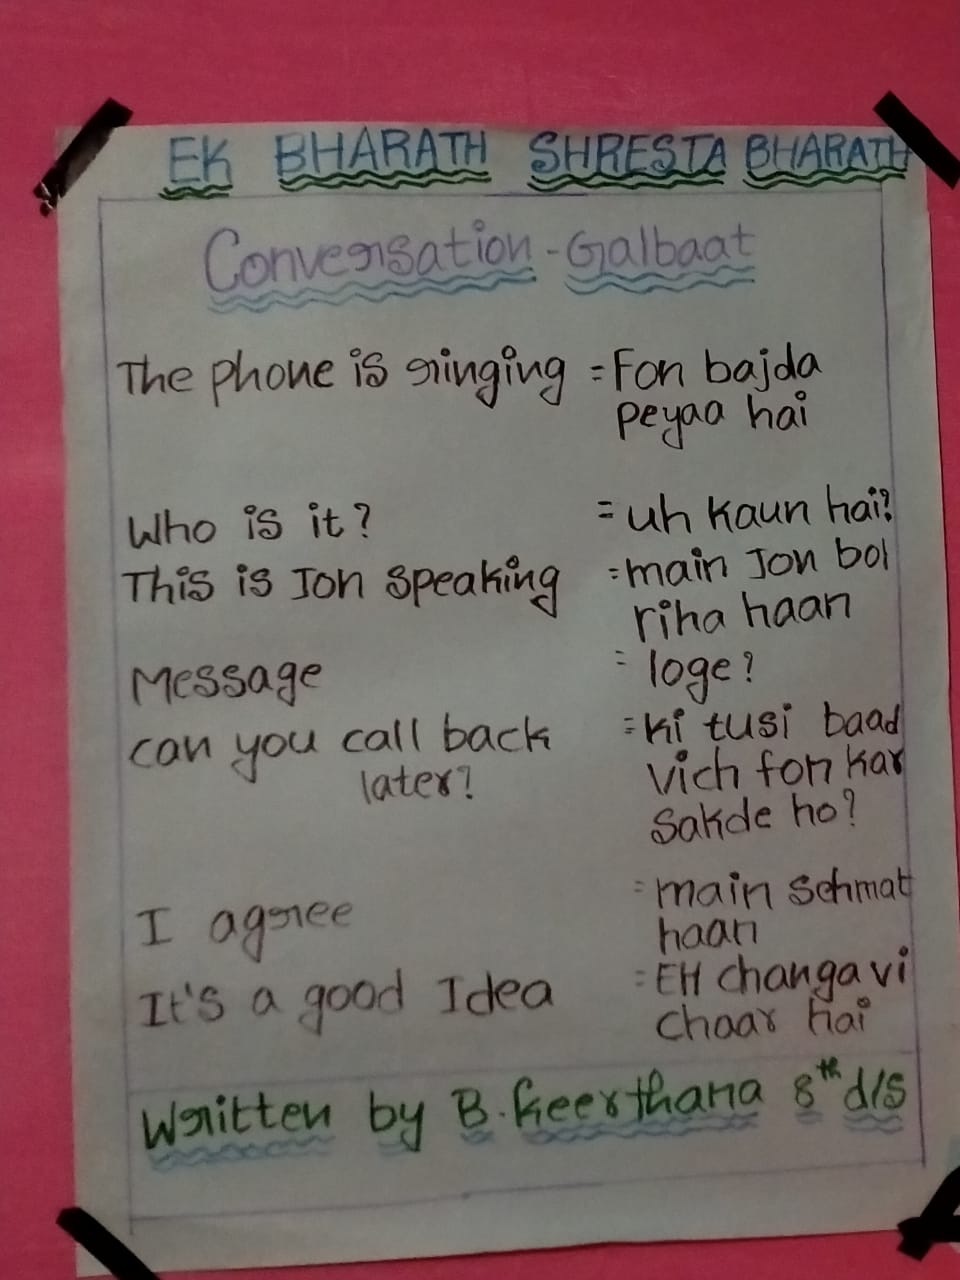 EK BHARATH SHRESTA BHARATH
Conversation - Galbaat
The phone is ringing = Fon bajda
peyaa hai
Who is it? = uh kaun hai?
This is Jon speaking = main Jon bol
riha haan
Message = loge?
can you call back = ki tusi baad
later? vich fon kar
sakde ho?
I agree = main sehmat
haan
It's a good Idea = EH changa vi
chaar hai
Written by B. Keerthana 8th d/s